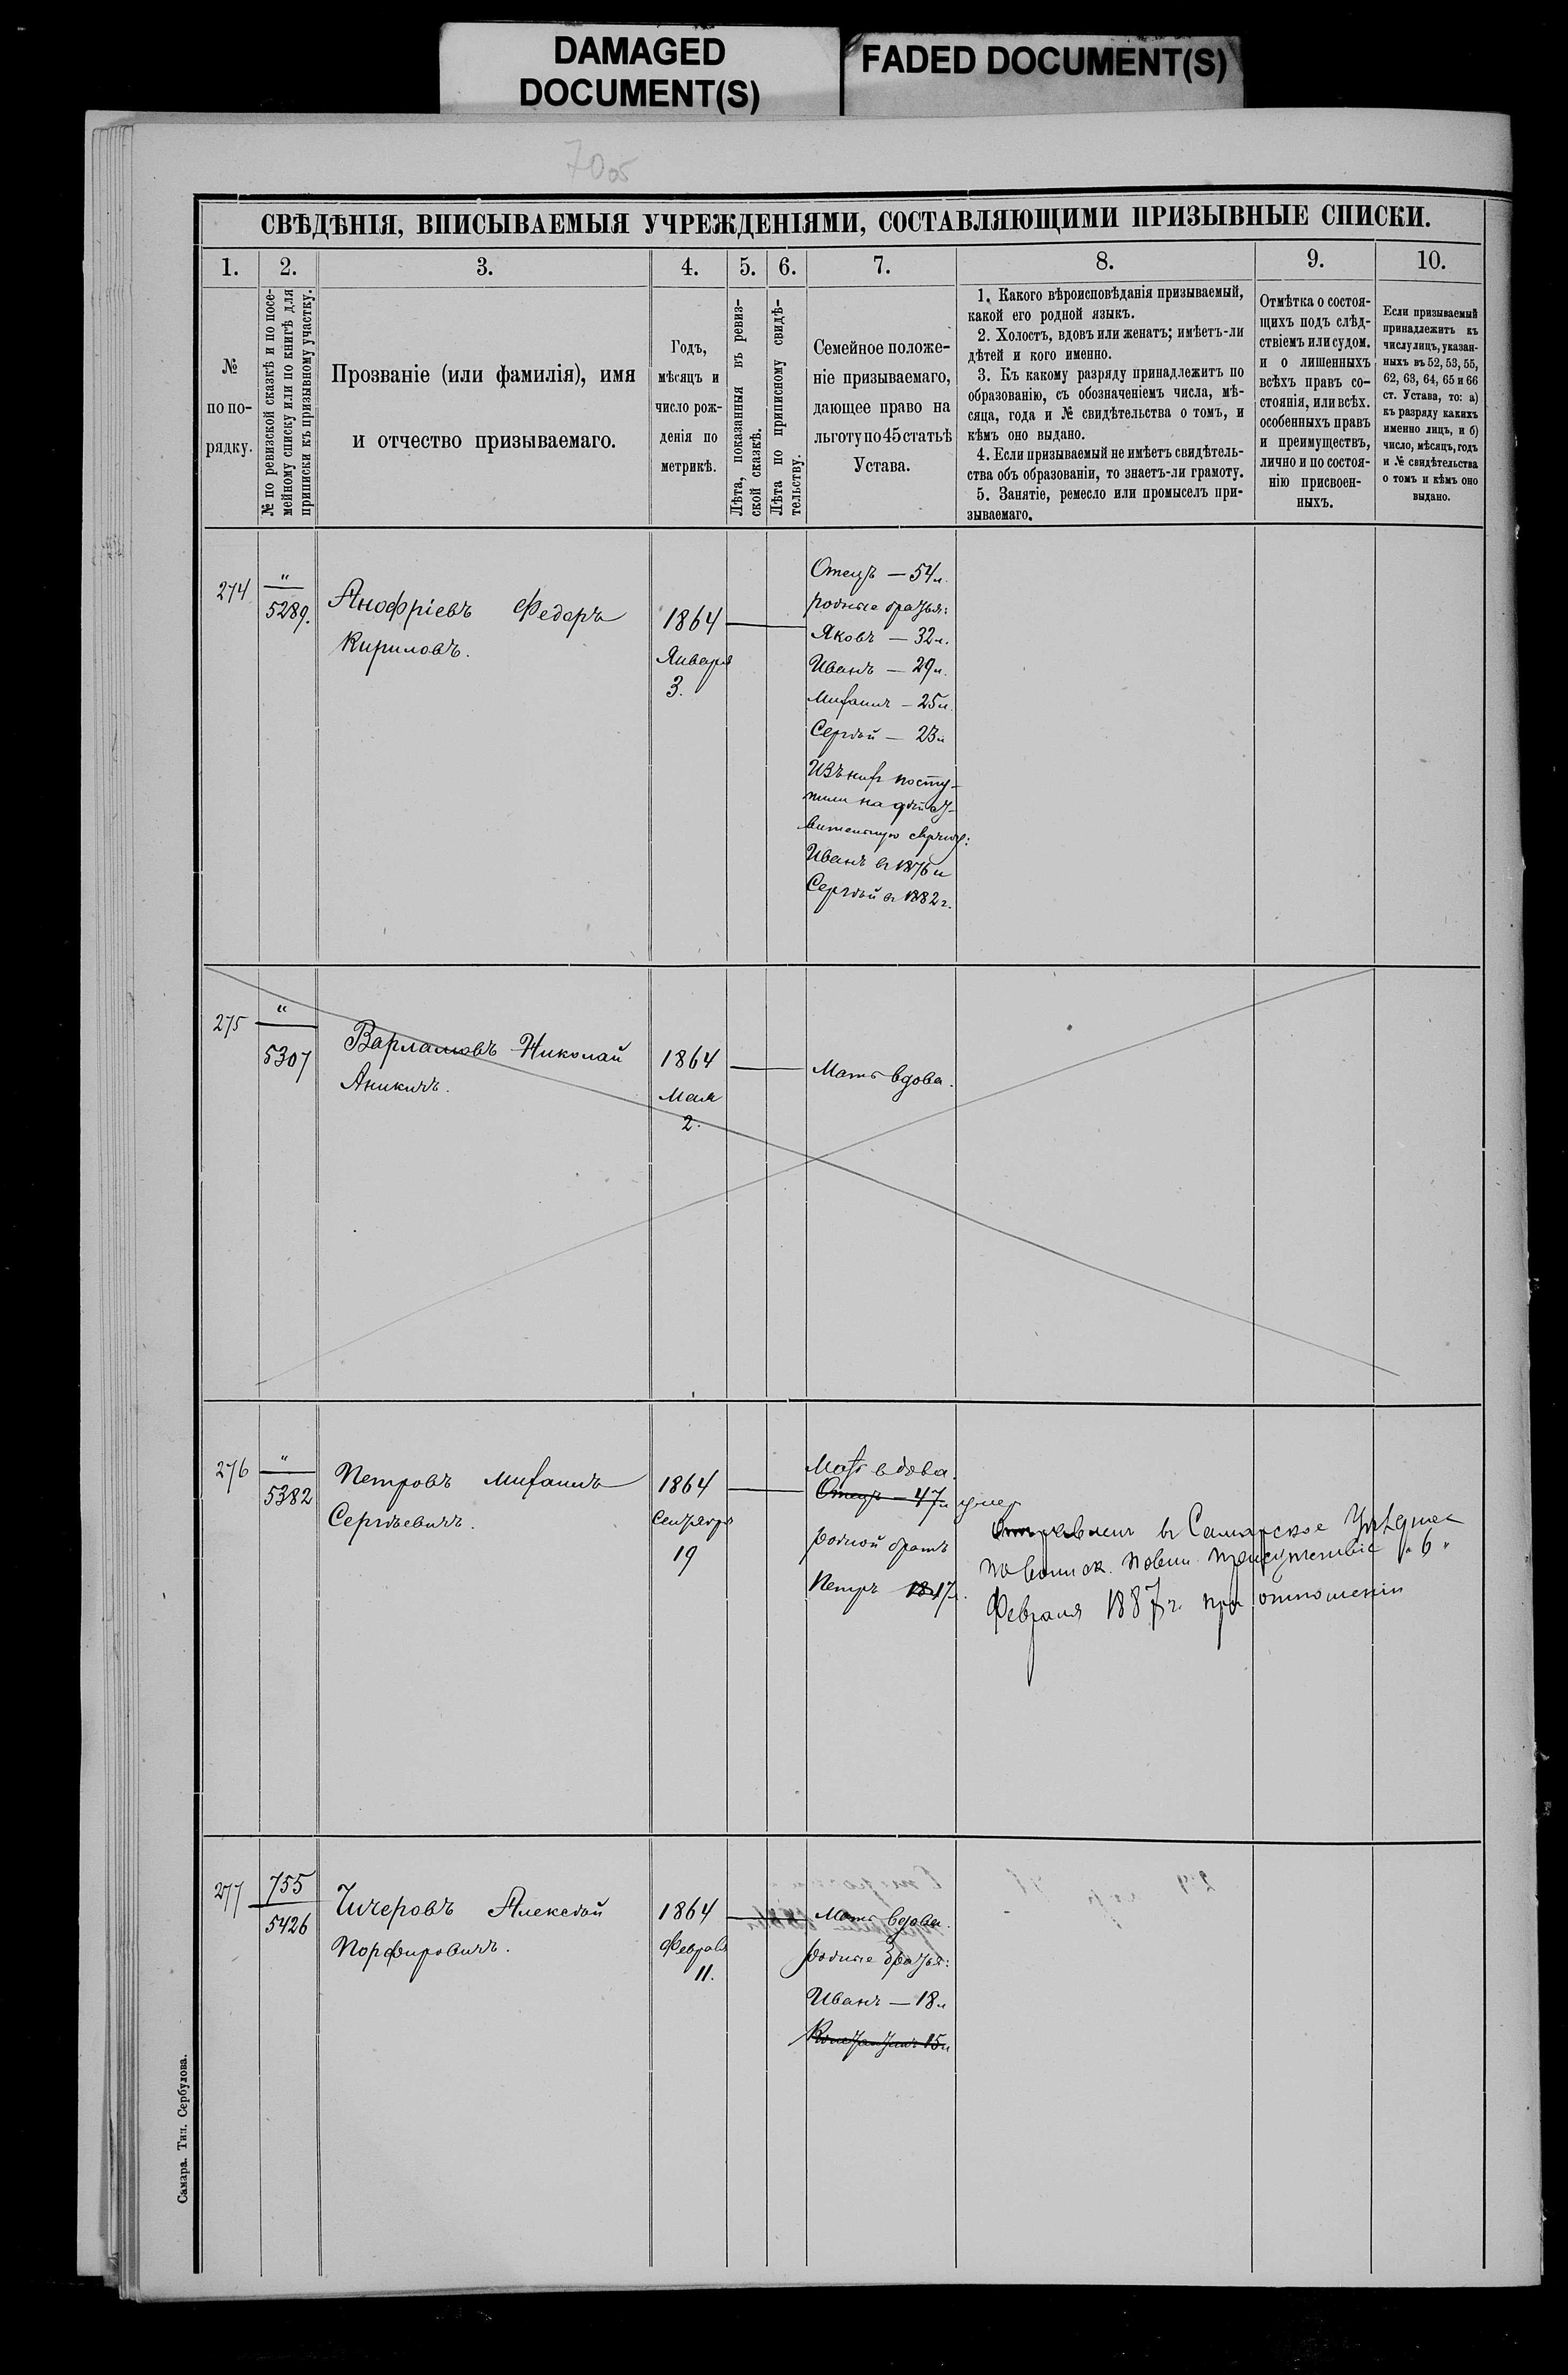 DAMAGED
DOCUMENT(S)
FADED DOCUMENT(S)
СВѢДѢНІЯ, ВПИСЫВАЕМЫЯ УЧРЕЖДЕНІЯМИ, СОСТАВЛЯЮЩИМИ ПРИЗЫВНЫЕ СПИСКИ.
1. 2. 3. 4. 5. 6. 7. 8. 9. 10.
№
по по-
рядку.
№ по ревизской сказкѣ и по посе-
мейному списку или по книгѣ для
приписки къ призывному участку.
Прозваніе (или фамилія), имя
и отчество призываемаго.
Годъ,
мѣсяцъ и
число рож-
денія по
метрикѣ.
Лѣта, показанныя въ ревиз-
ской сказкѣ.
Лѣта по приписному свидѣ-
тельству.
Семейное положе-
ніе призываемаго,
дающее право на
льготу по 45 статьѣ
Устава.
1. Какого вѣроисповѣданія призываемый,
какой его родной языкъ.
2. Холостъ, вдовъ или женатъ; имѣетъ-ли
дѣтей и кого именно.
3. Къ какому разряду принадлежитъ по
образованію, съ обозначеніемъ числа, мѣ-
сяца, года и № свидѣтельства о томъ, и
кѣмъ оно выдано.
4. Если призываемый не имѣетъ свидѣтель-
ства объ образованіи, то знаетъ-ли грамоту.
5. Занятіе, ремесло или промыселъ при-
зываемаго.
Отмѣтка о состоя-
щихъ подъ слѣд-
ствіемъ или судом.
и о лишенныхъ
всѣхъ правъ со-
стоянія, или всѣх.
особенныхъ правъ
и преимуществъ,
лично и по состоя-
нію присвоен-
ныхъ.
Если призываемый
принадлежитъ къ
числу лицъ, указан-
ныхъ въ 52, 53, 55,
62, 63, 64, 65 и 66
ст. Устава, то: а)
къ разряду какихъ
именно лицъ, и б)
число, мѣсяцъ, годъ
и № свидѣтельства
о томъ и кѣмъ оно
выдано.
274
"
5289.
Анофріевъ Федоръ
Кириловъ.
1864
Января
3.
Отецъ — 54 л.
родные братья:
Яковъ — 32 л.
Иванъ — 29 л.
Михаилъ — 25 л.
Сергѣй — 23 л
Изъ нихъ посту-
пили на дѣйст-
вительную службу:
Иванъ въ 1876 и
Сергѣй въ 1882 г.
275
"
5307
Варламовъ Николай
Аникичъ.
1864
Мая
2.
Мать вдова.
276
"
5382
Петровъ Михаилъ
Сергѣевичъ.
1864
Сентября
19
Мать вдова.
Отецъ — 47 л умер
родной братъ
Петръ 17 л.
Отправленъ въ Самарское Уѣздное
по воинск. повин. присутствіе " 6 "
Февраля 1887 г. при отношеніи
277
755
5426
Чичеровъ Алексѣй
Порфировичъ.
1864
Февраля
11.
Мать вдова.
родные братья:
Иванъ — 18 л
Константинъ 15 л
Самара. Тип. Сербулова.